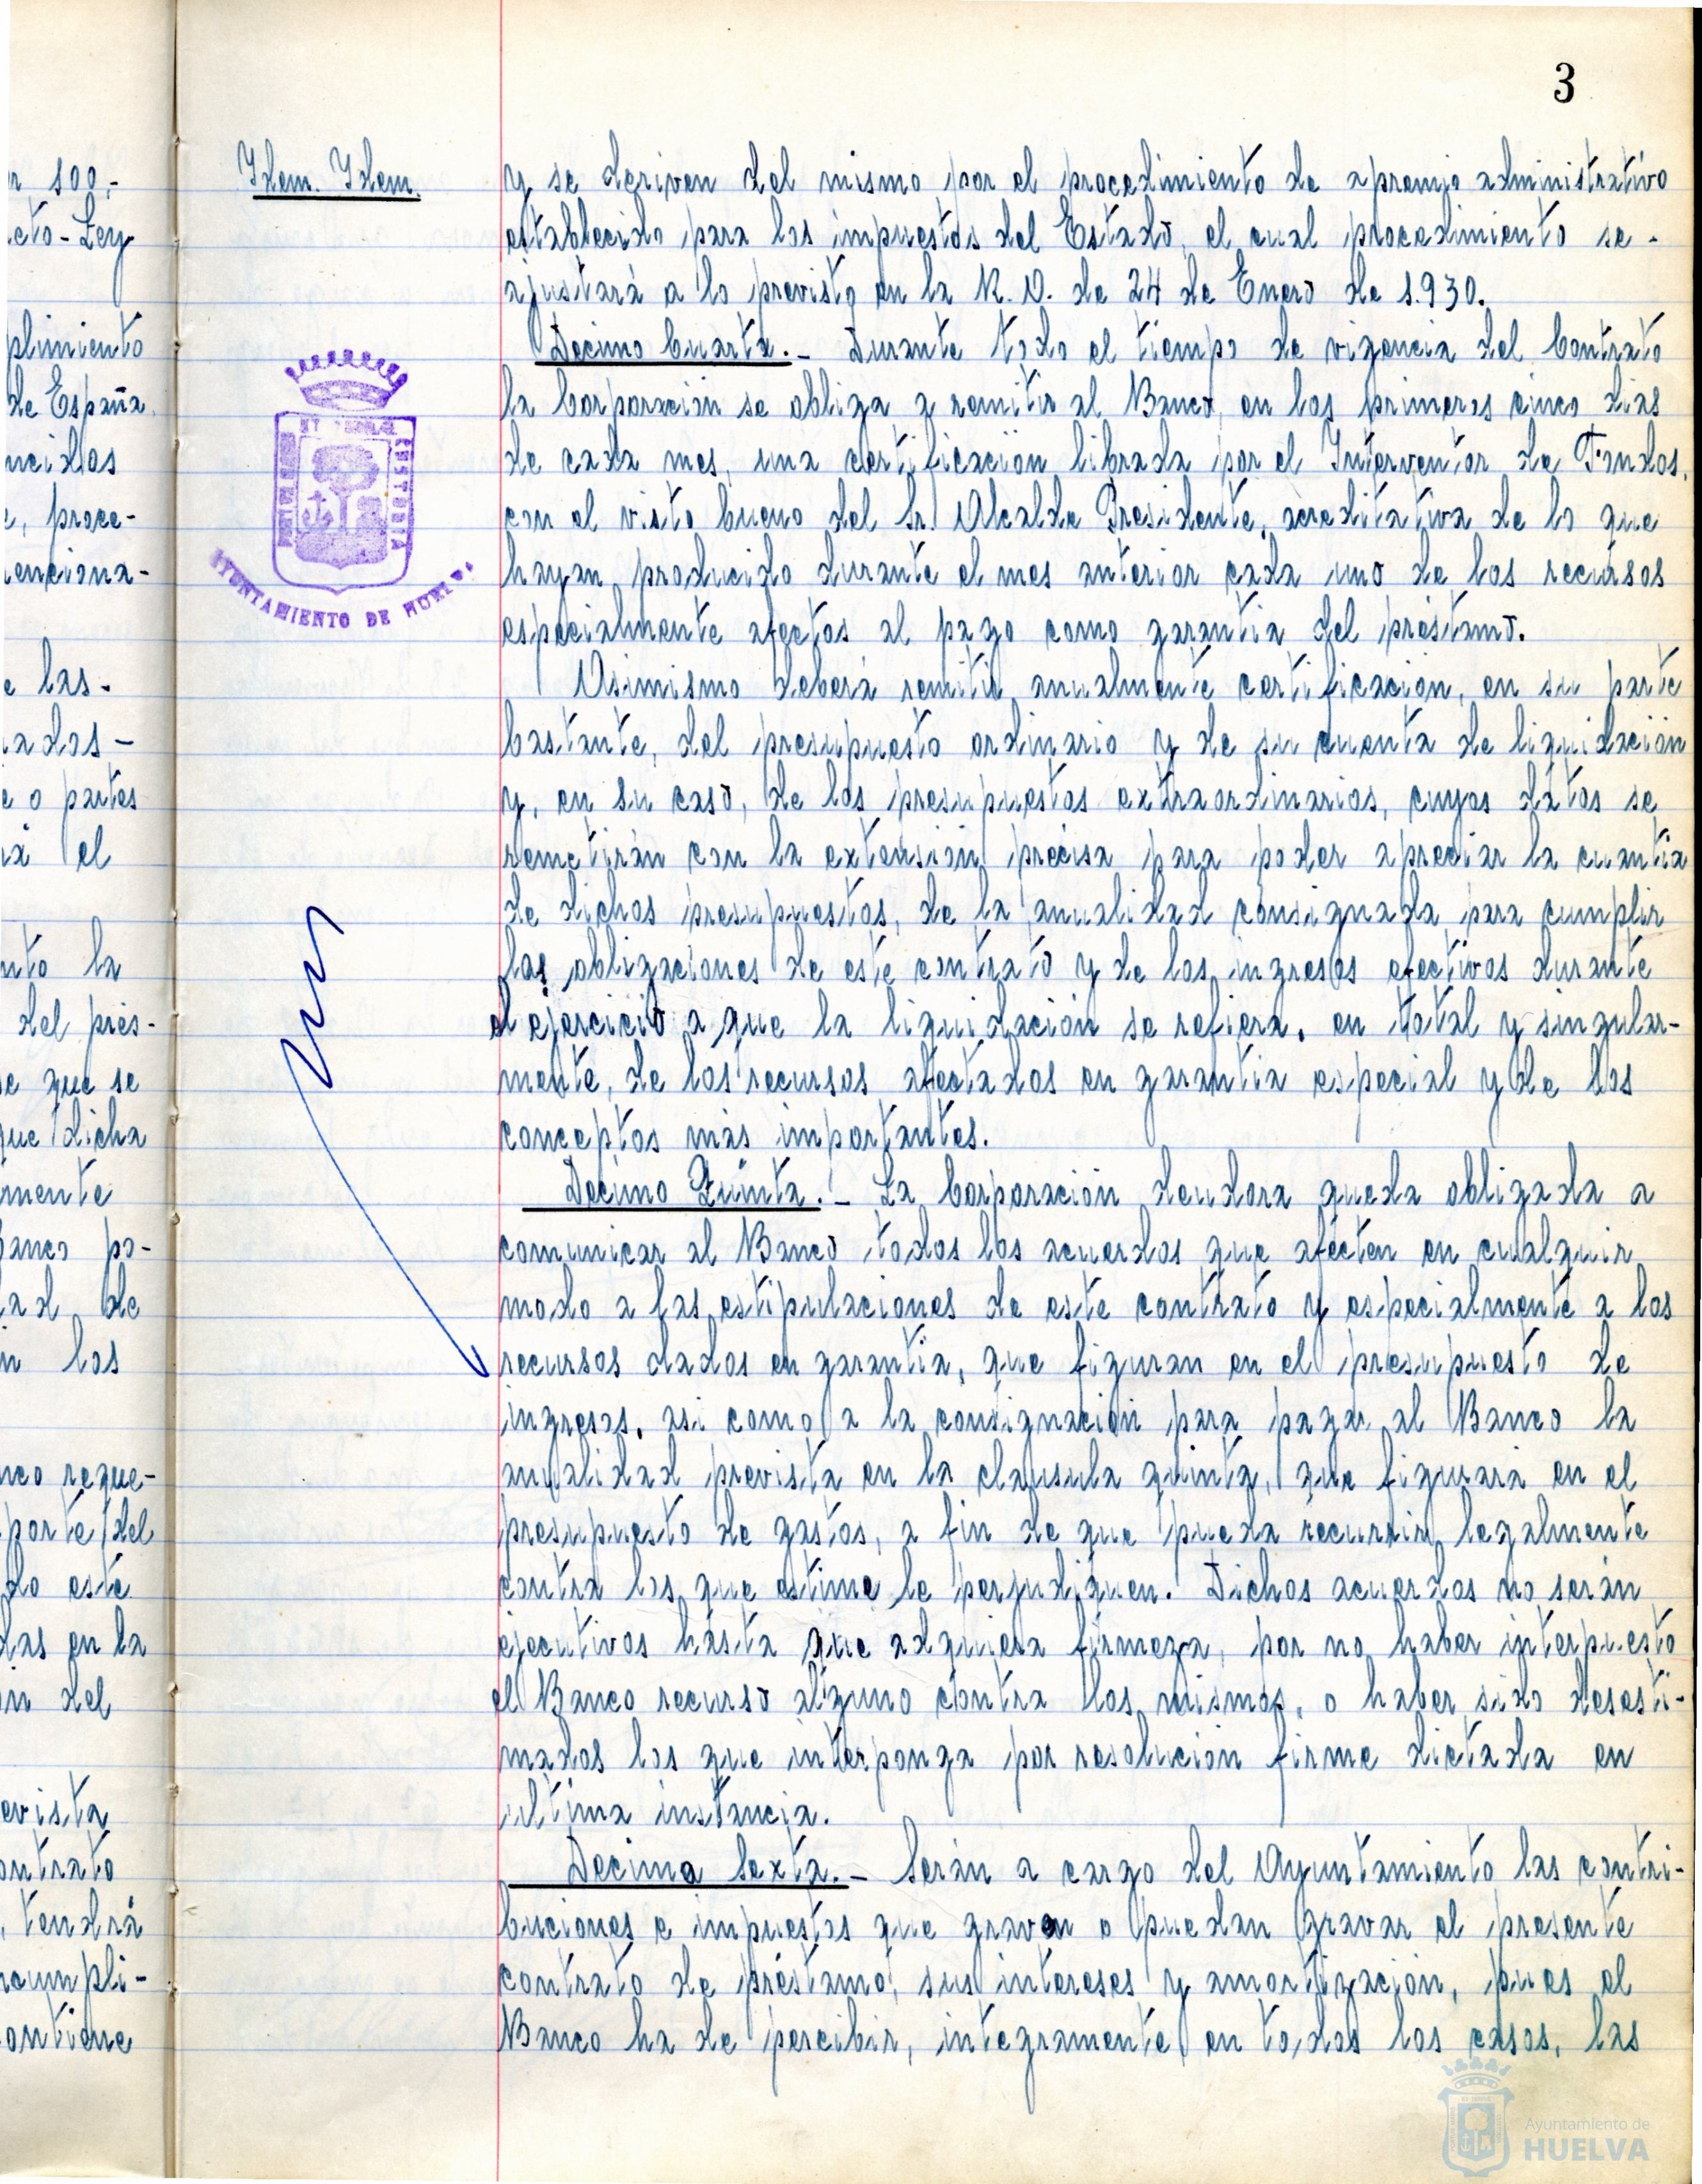 3
Idem. Idem.
y se deriven del mismo por el procedimiento de apremio administrativo
establecido para los impuestos del Estado, el cual procedimiento se-
ajustará a lo previsto en la R. O. de 24 de Enero de 1.930.
Décimo Cuarta.- Durante todo el tiempo de vigencia del Contrato
la Corporación se obliga a remitir al Banco, en los primeros cinco dias
de cada mes, una certificación librada por el Interventor de Fondos,
con el visto bueno del Sr. Alcalde Presidente, acreditativa de lo que
hayan producido durante el mes anterior cada uno de los recursos
especialmente afectos al pago como garantia del préstamo.
Asimismo deberá remitir anualmente certificación, en su parte
bastante, del presupuesto ordinario y de su cuenta de liquidación
y, en su caso, de los presupuestos extraordinarios, cuyos datos se
remetirán con la extensión precisa para poder apreciar la cuantia
de dichos presupuestos, de la anualidad consignada para cumplir
las obligaciones de este contrato y de los ingresos efectivos durante
el ejercicio a que la liquidación se refiera, en total y singular-
mente, de los recursos afectados en garantia especial y de los
conceptos más importantes.
Décimo Quinta.- La Corporación deudora queda obligada a
comunicar al Banco todos los acuerdos que afecten en cualquir
modo a las estipulaciones de este contrato y especialmente a los
recursos dados en garantia, que figuran en el presupuesto de
ingresos, asi como a la consignación para pagar al Banco la
anualidad prevista en la clausula quinta, que figurará en el
presupuesto de gastos, a fin de que pueda recurrir legalmente
contra los que estime le perjudiquen. Dichos acuerdos no serán
ejecutivos hasta que adquiera firmeza, por no haber interpuesto
el Banco recurso alguno contra los mismos, o haber sido desesti-
mados los que interponga por resolución firme dictada en
última instancia.
Décima Sexta.- Serán a cargo del Ayuntamiento las contri-
buciones e impuestos que graven o puedan gravar el presente
contrato de préstamo, sus intereses y amortización, pues el
Banco ha de percibir, integramente en todos los casos, las
AYUNTAMIENTO DE HUELVA
r 100,-
cto-Ley
plimiento
de España
ncidos
e, proce-
enciona-
e las-
ados-
e o partes
rá el
nto la
del prés-
e que se
que dicha
mente
Banco po-
ad de
n los
nco reque-
porte del
do este
das en la
ón del
evista
ontrato
, tendrá
ncumpli-
ontiene
Ayuntamiento de
HUELVA